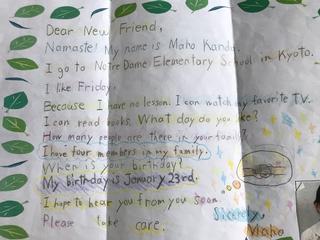 Dear New Friend,
Namaste! My name is Maho Kanda.
I go to Notre Dame Elementary School in Kyoto.
I like Friday.
Because I have no lesson. I can watch my favorite TV.
I can read books. What day do you like?
How many people are there in your family?
I have four members in my family.
When is your birthday?
My birthday is January 23rd.
I hope to hear you from you soon...
Please take care.
Sincerely,
Maho